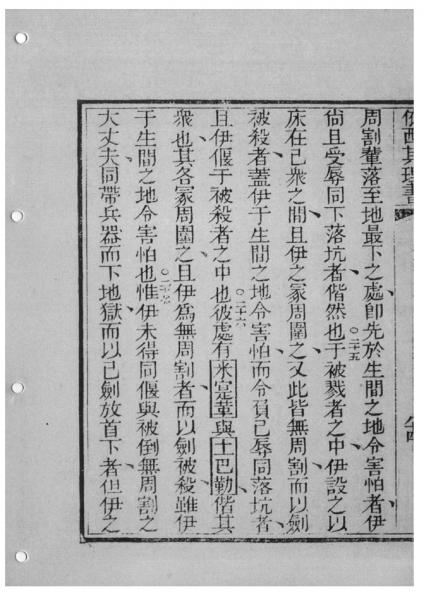 周割輩落至地最下之處卽先於生間之地令害怕者伊
尙且受辱同下落坑者偕然也〇二十五于被戮者之中伊設之以
床在己衆之間且伊之冢周圍之又此皆無周割而以劍
被殺者蓋伊于生間之地令害怕而令負己辱同落坑者
且伊偃于被殺者之中也〇二十六彼處有米寔輦與土巴勒偕其
衆也其各冢周圍之且伊爲無周割者而以劍被殺雖伊
于生間之地令害怕也〇二十七惟伊未得同偃與被倒無周割之
大丈夫同帶兵器而下地獄而以己劍放首下者但伊之